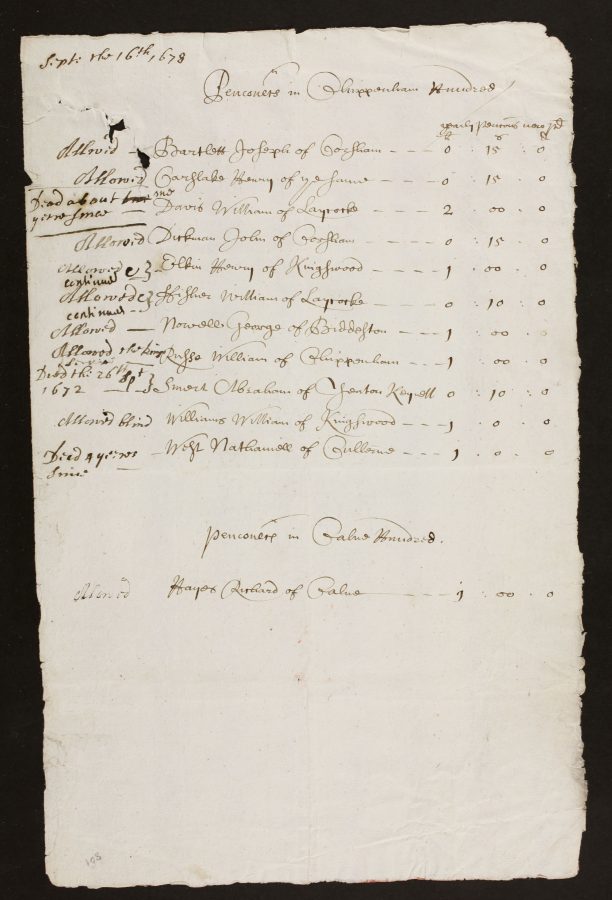 Sept: the 16th 1678
Penconers in Chippenham Hundred
yearly pencons now pd
£ s d
Allowed - Bartlett Joseph of Corsham - - - 0 : 15 : 0
Allowed Carslake Henry of ye same - - - 0 : 15 : 0
Dead about one
yeere since - Davis William of Laycocke - - - 2 : 00 : 0
Allowed Dickman John of Corsham - - - 0 : 15 : 0
Allowed &
continued } Elkin Henry of Kingswood - - - 1 : 00 : 0
Allowed &
continued } William of Laycocke - - - 0 : 10 : 0
Allowed - Nowell George of Biddeston - - - 1 : 00 : 0
Allowed Russe William of Chippenham - - - 1 : 00 : 0
Died the 26th Sept
1672 - } Smert Abraham of Yenton Keynell 0 : 10 : 0
Allowed blind Williams William of Kingswood - - - 1 : 0 : 0
Dead 4 yeeres
since - West Nathaniell of Cullerne - - - 1 : 0 : 0
Penconers in Calne Hundred.
Allowed Hayes Richard of Calne - - - 1 : 00 : 0
103